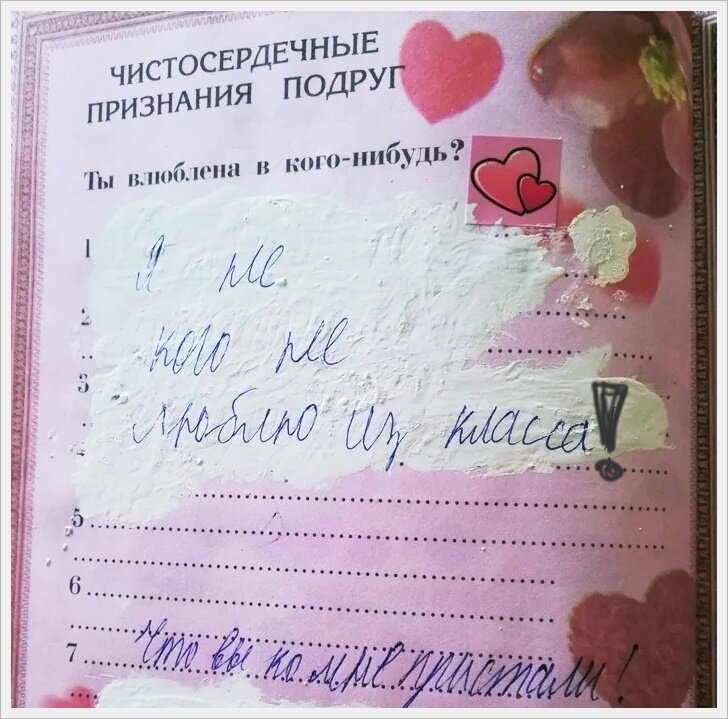 ЧИСТОСЕРДЕЧНЫЕ
ПРИЗНАНИЯ ПОДРУГ
Ты влюблена в кого-нибудь?
1
Я не
2
кого не
3
люблю из класса!
5
6
7 Что вы ко мне пристали!